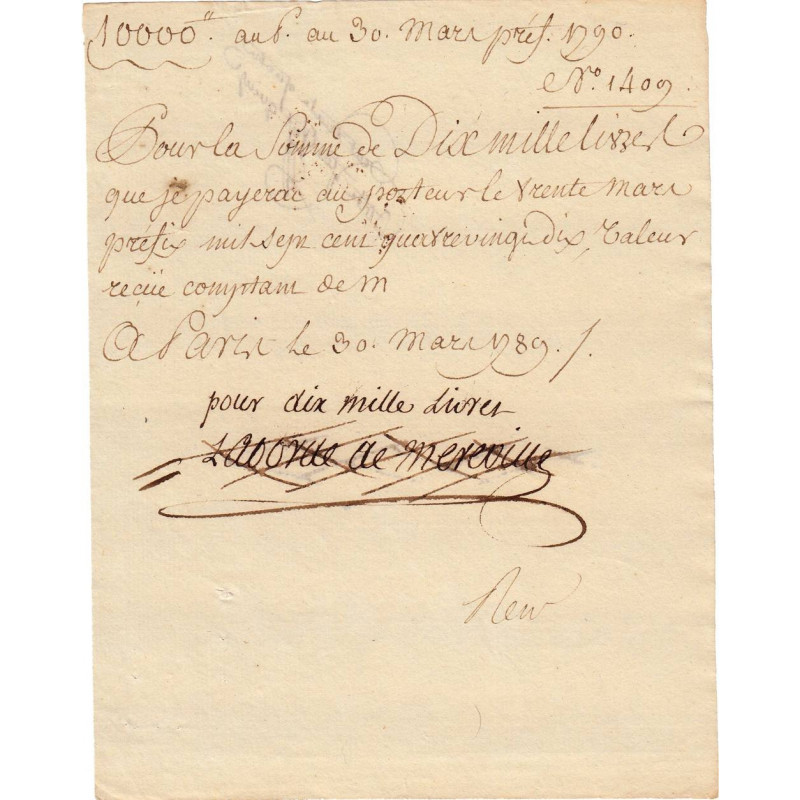 10000ᵗᵗ. au P. au 30. Mars préf. 1790.
N.º 1409.
Pour la Somme de Dix mille livres
que je payerai au porteur le trente mars
préfix mil sept cent quatrevingt dix, valeur
reçüe comptant de m
A Paris le 30. Mars 1789 ./.
pour dix mille Livres
Laborde de mereville